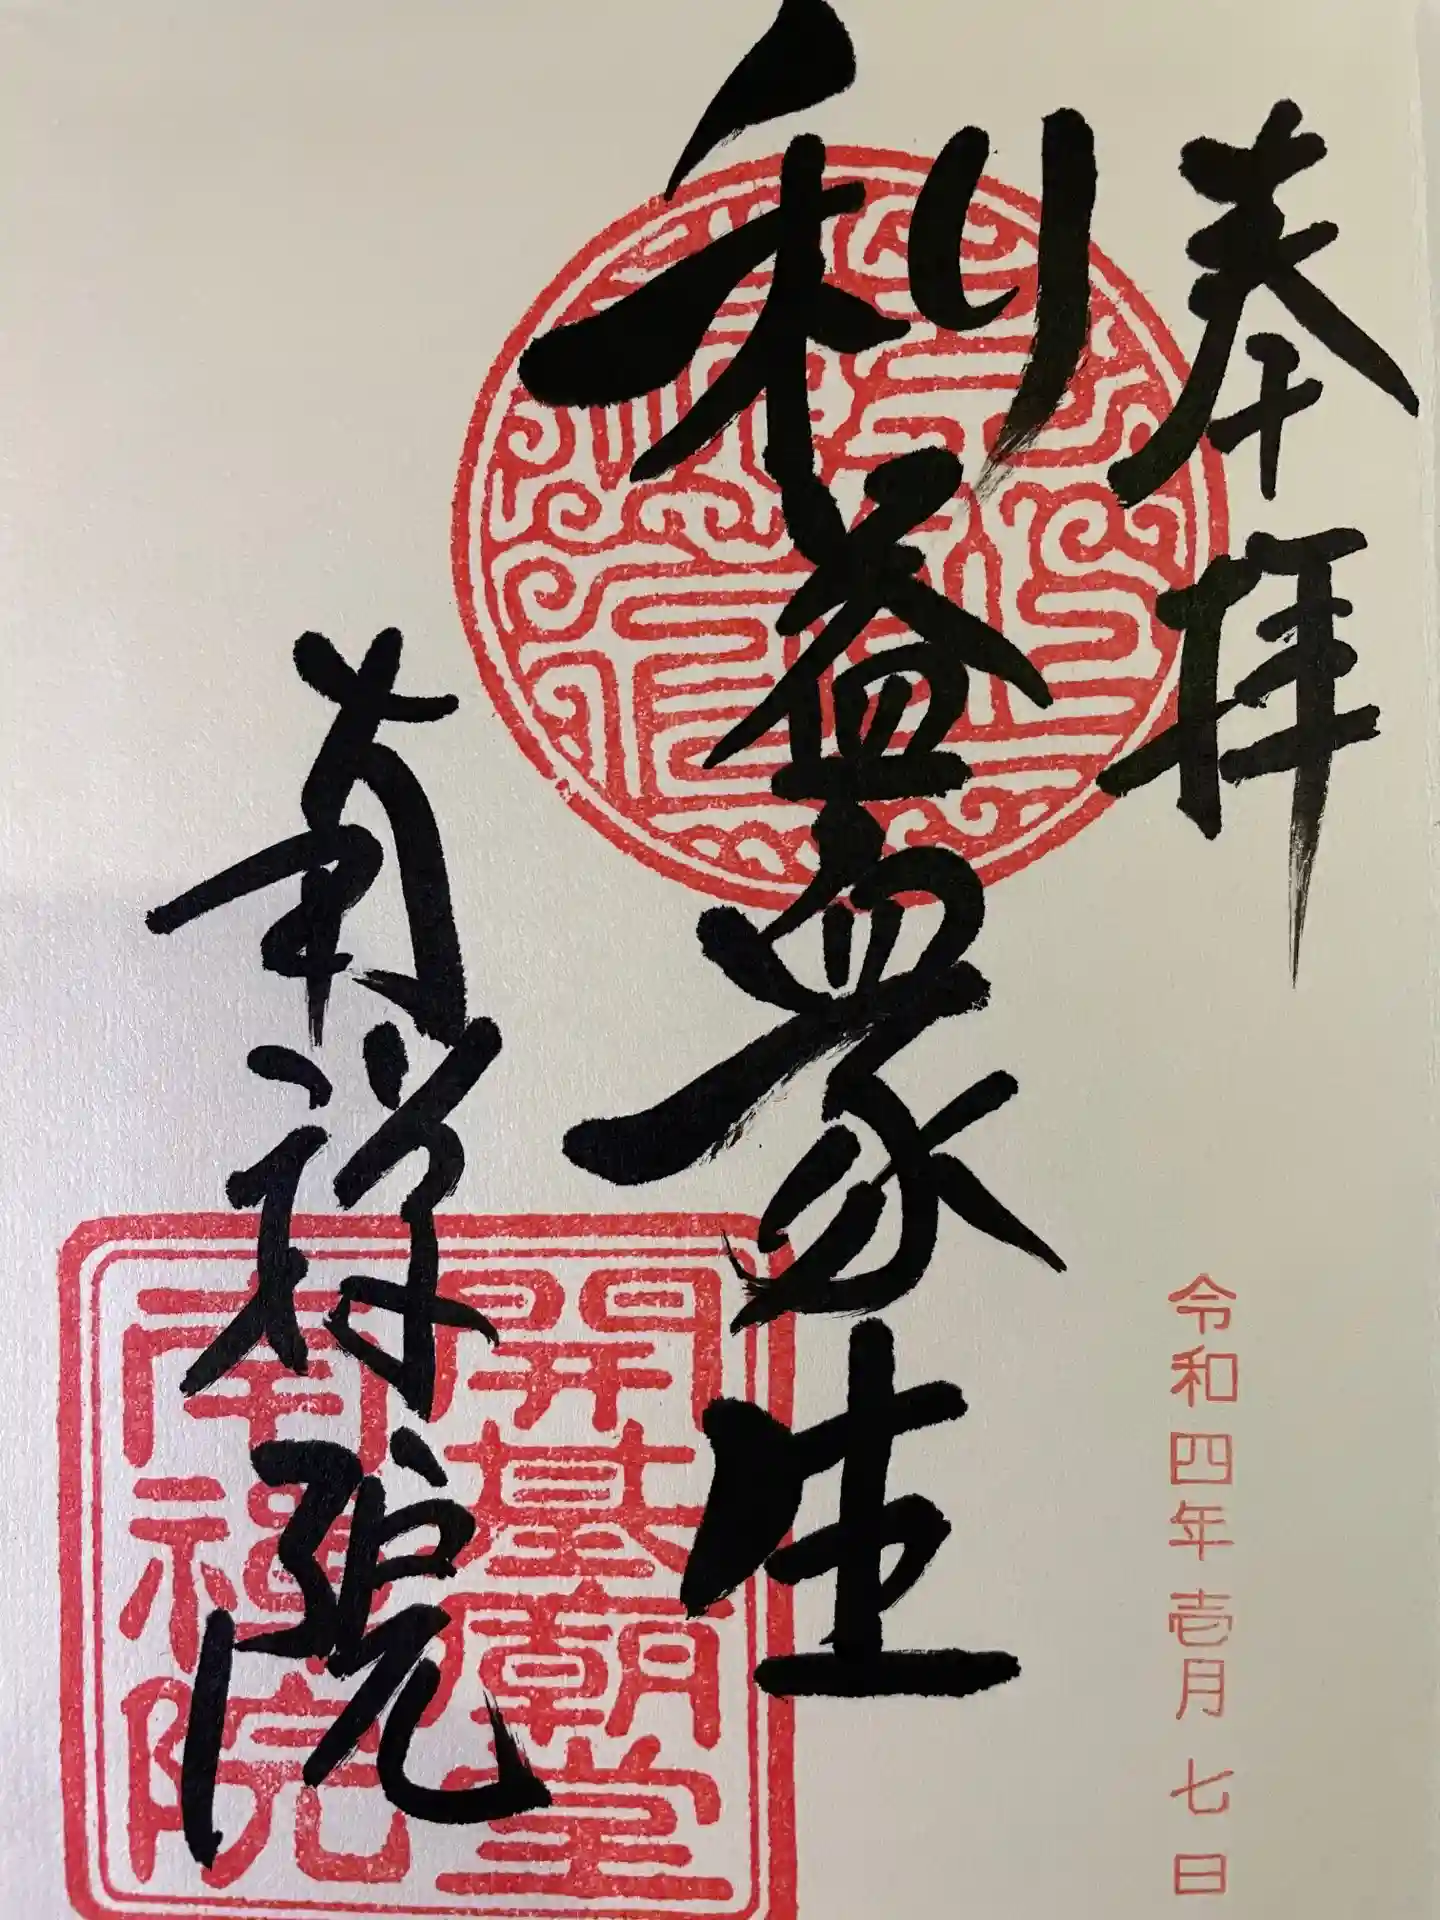 奉拝
令和四年壱月七日
利益衆生
南禅院
開基廟堂
南禪院